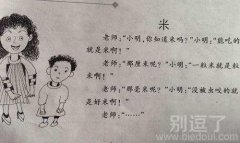 米
老师:“小明,你知道米吗?”小明:“能吃的
就是米啊!”
老师:“那厘米呢?”小明:“一粒米就是厘
米啊!”
老师:“那毫米呢?”小明:“没被虫咬的就
是好米啊!”
老师:“……”
别逗了
www.biedoul.com